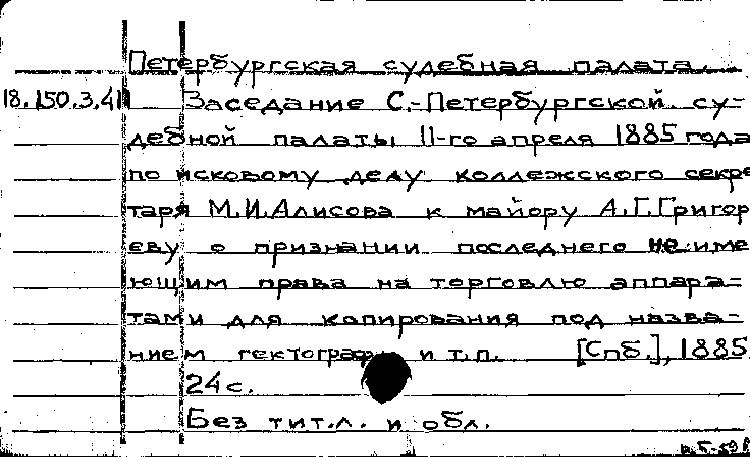 Петербургская судебная палата.
18.150.3.411 Заседание С.-Петербургской су-
дебной палаты 11-го апреля 1885 года
по исковому делу коллежского секре
таря М.И.Алисова к майору А.Г.Григор
еву о признании последнего не име
ющим права на торговлю аппара-
тами для копирования под назва-
нием гектографы и т.п. [Спб.], 1885
24с.
Без тит.л. и обл.